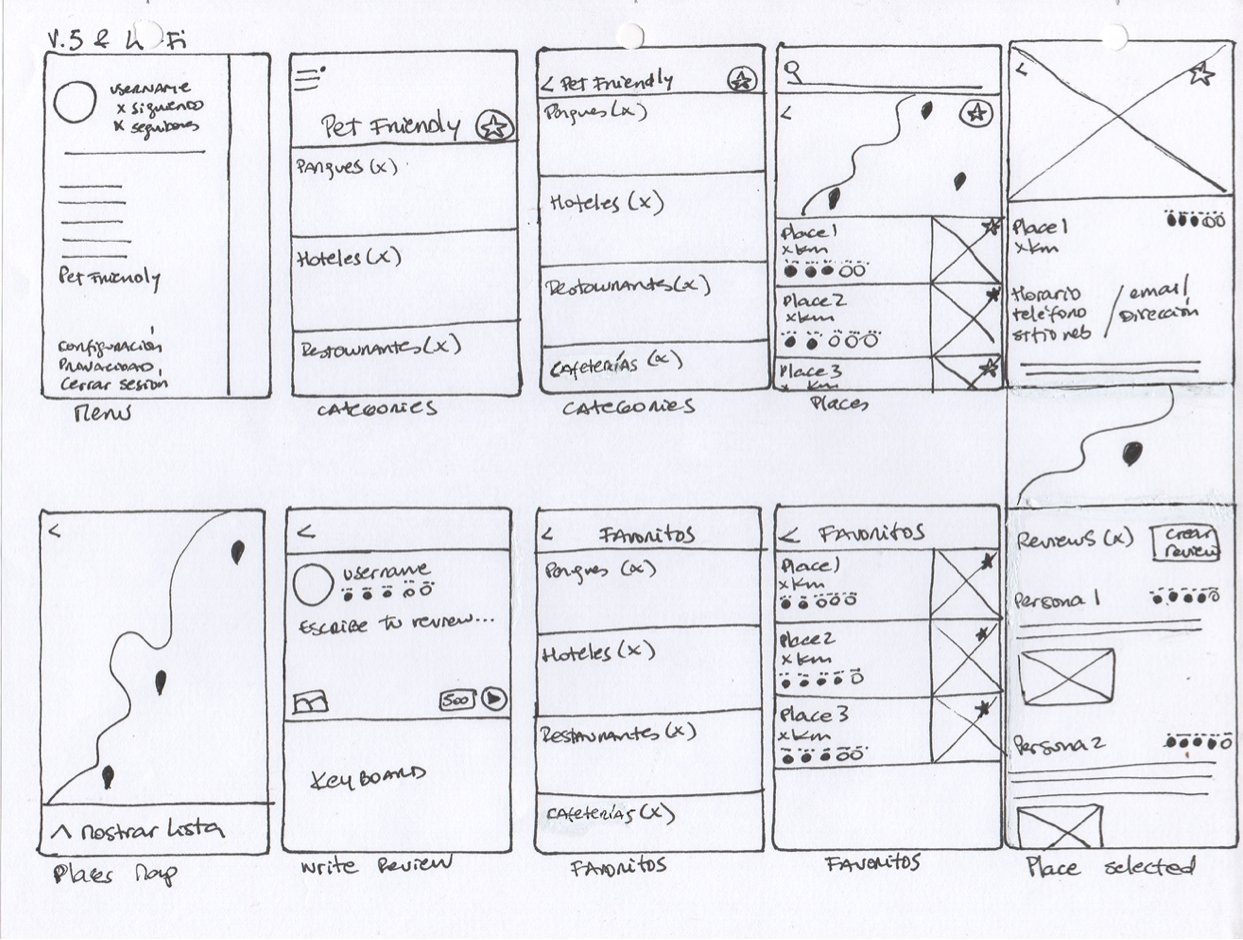 V.5 & Lo Fi
username
x siguiendo
x seguidores
Pet Friendly
Configuración
Privacidad
Cerrar sesión
Menu
Pet Friendly
Parques (x)
Hoteles (x)
Restaurantes (x)
Categories
< Pet Friendly
Parques (x)
Hoteles (x)
Restaurantes (x)
Cafeterías (x)
Categories
<
Place 1
x km
Place 2
x km
Place 3
x km
Places
<
Place 1
x km
Horario
teléfono
sitio web
/ email
Dirección
Reviews (x)
Crear
review
Persona 1
Persona 2
Place selected
<
^ Mostrar Lista
Places Map
<
username
Escribe tu review...
500
Keyboard
Write Review
< Favoritos
Parques (x)
Hoteles (x)
Restaurantes (x)
Cafeterías (x)
Favoritos
< Favoritos
Place 1
x km
Place 2
x km
Place 3
x km
Favoritos